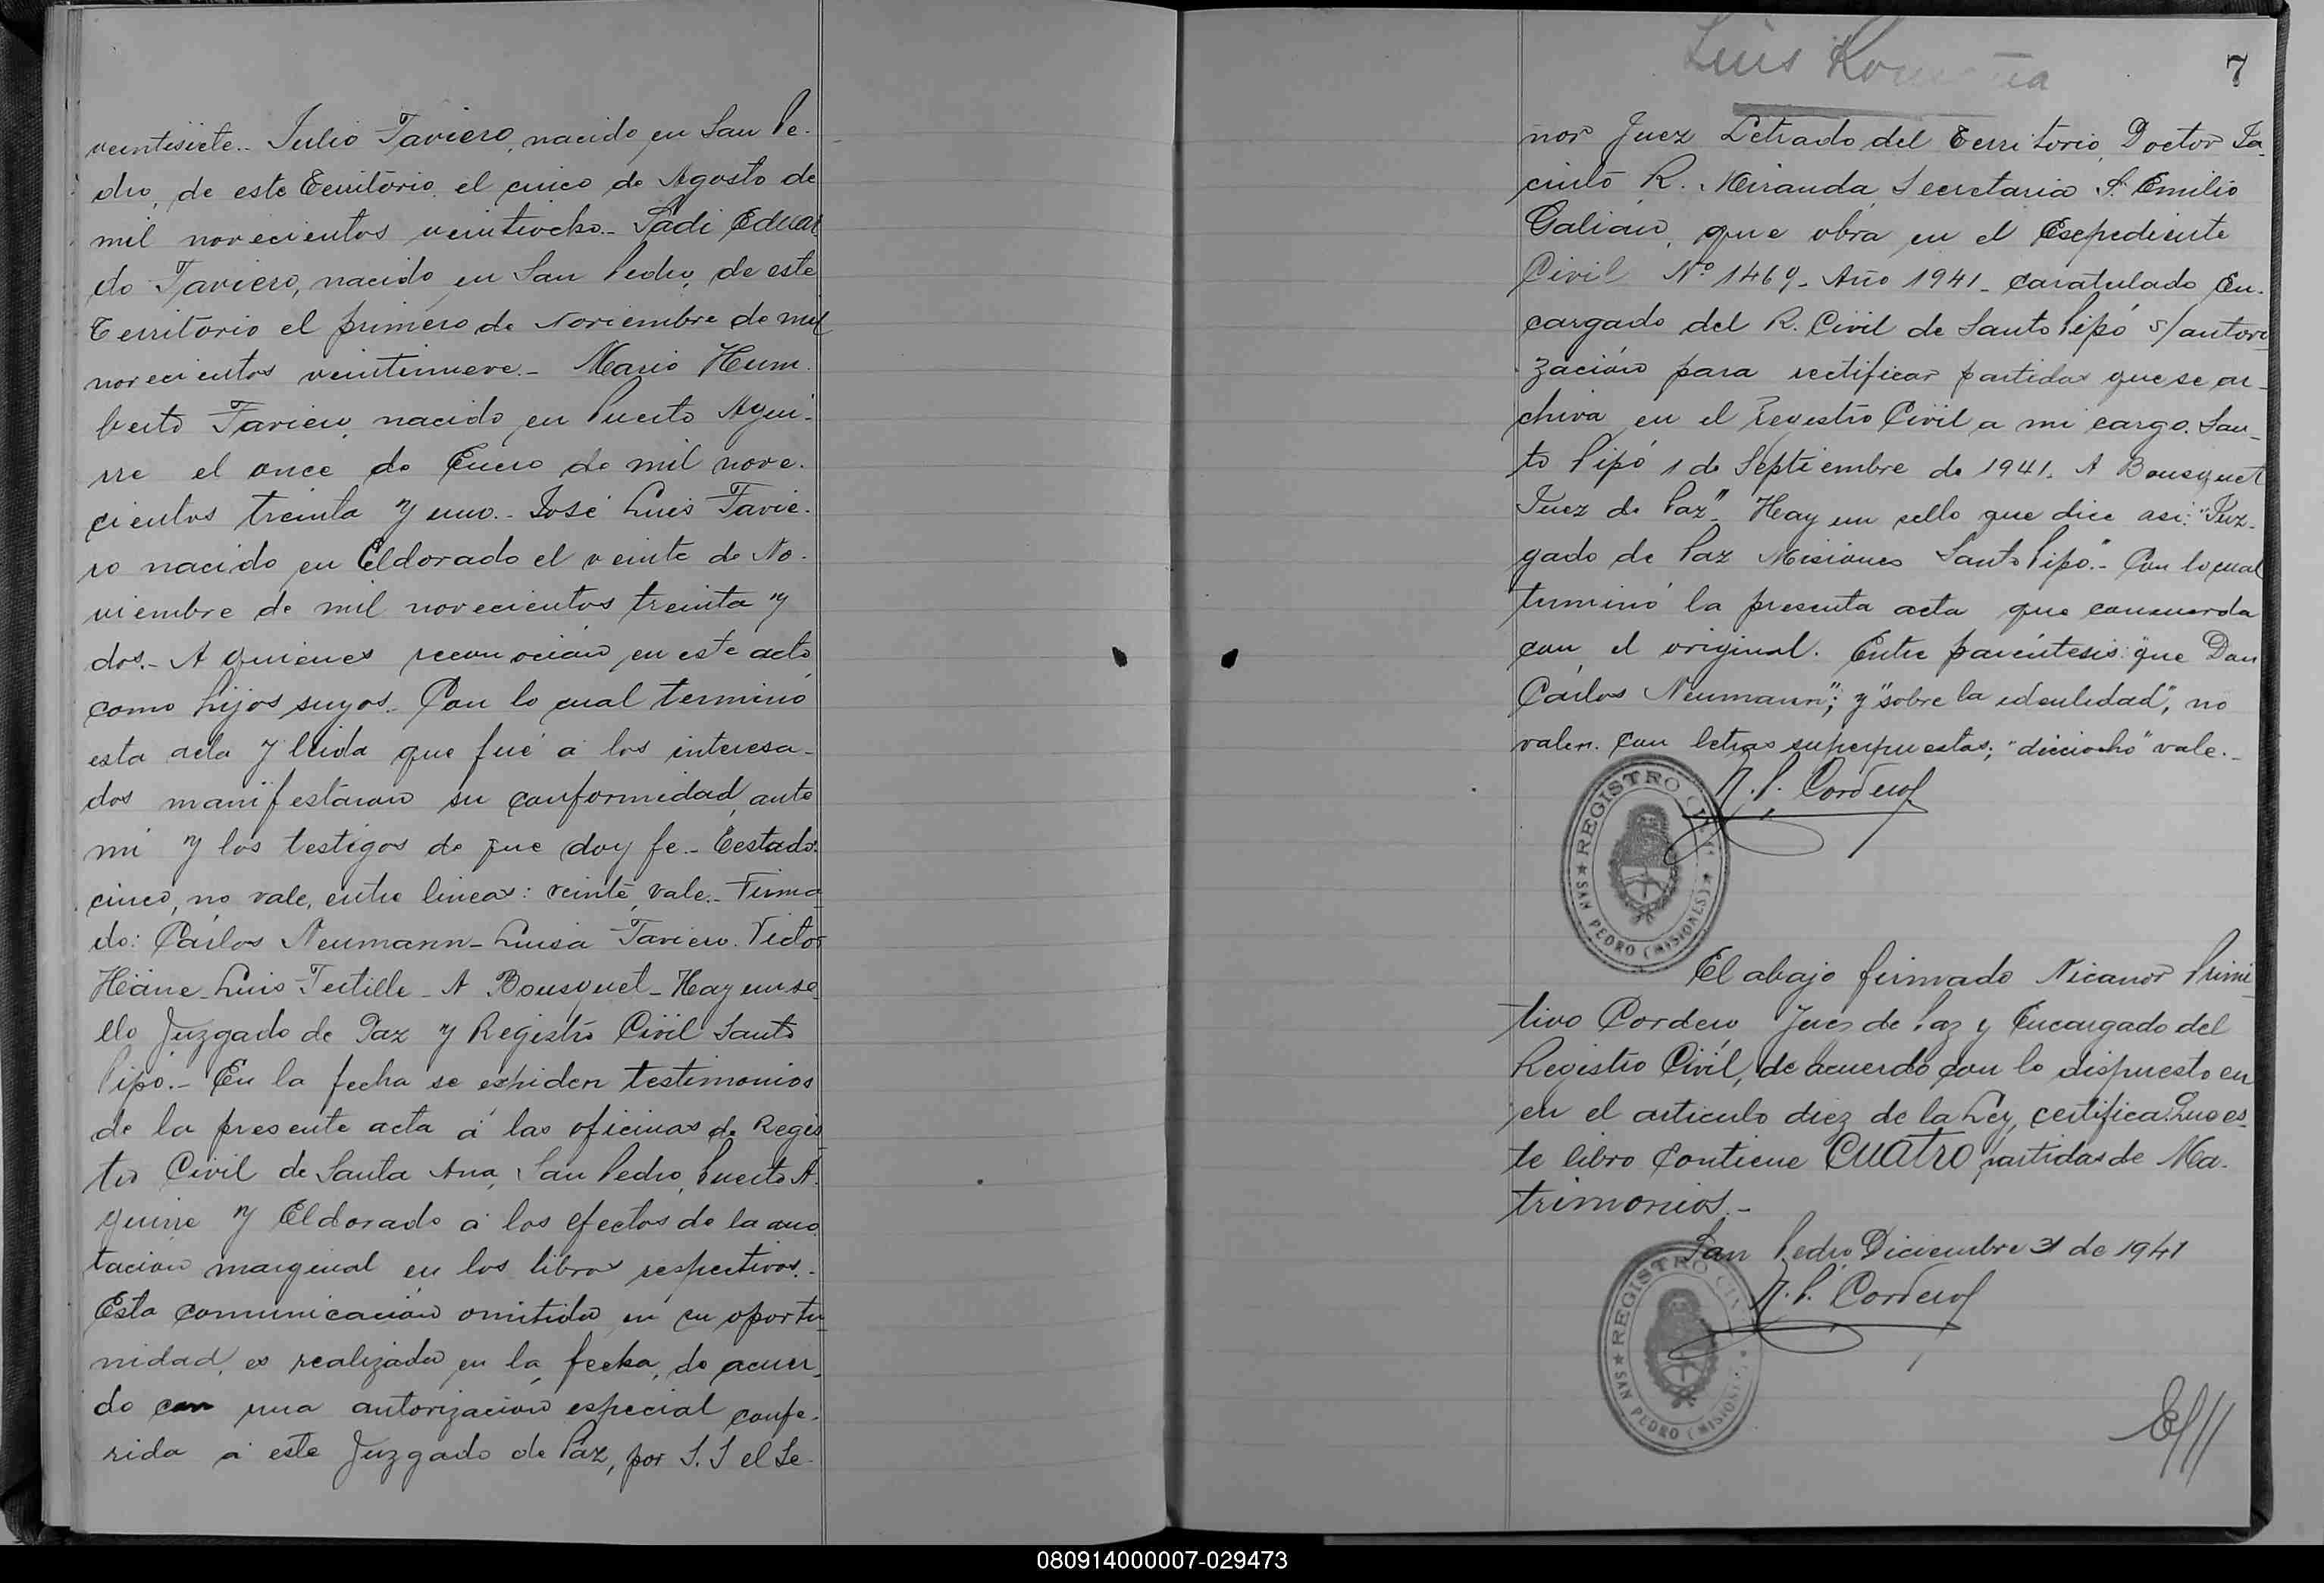 veintisiete.- Julio Taviero, nacido en San Pe-
dro, de este Territorio, el cinco de Agosto de
mil novecientos veintiocho.- Sadi Eduar
do Taviero, nacido en San Pedro, de este
Territorio el primero de Noviembre de mil
novecientos veintinueve.- Mario Hum-
berto Taviero, nacido en Puerto Agui-
rre el once de Enero de mil nove-
cientos treinta y uno.- José Luis Tavie-
ro nacido en Eldorado el veinte de No-
viembre de mil novecientos treinta y
dos.- A quienes reconocian en este acto
como hijos suyos.- Con lo cual terminó
esta acta y leida que fué á los interesa-
dos manifestaron su conformidad, ante
mi y los testigos de que doy fe.- Testado:
cinco, no vale, entre lineas: veinte, vale.- Firma
do: Carlos Neumann- Luisa Taviero. Victor
Häne- Luis Tertille- A Bousquet- Hay un se
llo Juzgado de Paz y Registro Civil Santo
Pipó.- En la fecha se expiden testimonios
de la presente acta á las oficinas de Regis
tro Civil de Santa Ana, San Pedro, Puerto A-
guirre y Eldorado á los efectos de la ano
tacion marginal en los libros respectivos.-
Esta comunicación omitida en su oportu
nidad, es realizada en la fecha, de acuer-
do con una autorización especial confe-
rida á este Juzgado de Paz, por S.S el Se-
Luis
7
nor Juez Letrado del Territorio, Doctor Ja-
cinto R. Miranda, Secretaria S. Emilio
Galian, que obra en el Expediente
Civil Nº 1469- Año 1941- caratulado En-
cargado del R. Civil de Santo Pipó s/autori
zación para rectificar partidas que se ar-
chiva en el Registro Civil a mi cargo. San-
to Pipó 1 de Septiembre de 1941. A Bousquet
Juez de Paz"- Hay un sello que dice asi: "Juz-
gado de Paz Misiones Santo Pipó".- Con lo cual
terminó la presente acta que concuerda
con el original. Entre paréntesis: "que Don
Carlos Neumann"; y "sobre la identidad", no
valen. Con letras superpuestas; "dieciocho" vale.-
N. P. Cordero
REGISTRO CIVIL
SAN PEDRO (MISIONES)
El abajo firmado Nicanor Primi
tivo Cordero, Juez de Paz y Encargado del
Registro Civil, de acuerdo con lo dispuesto en
en el articulo diez de la Ley, certifica: Que es-
te libro contiene CUATRO partidas de Ma-
trimonios.-
San Pedro Diciembre 31 de 1941
N. P. Cordero
REGISTRO CIVIL
SAN PEDRO (MISIONES)
080914000007-029473